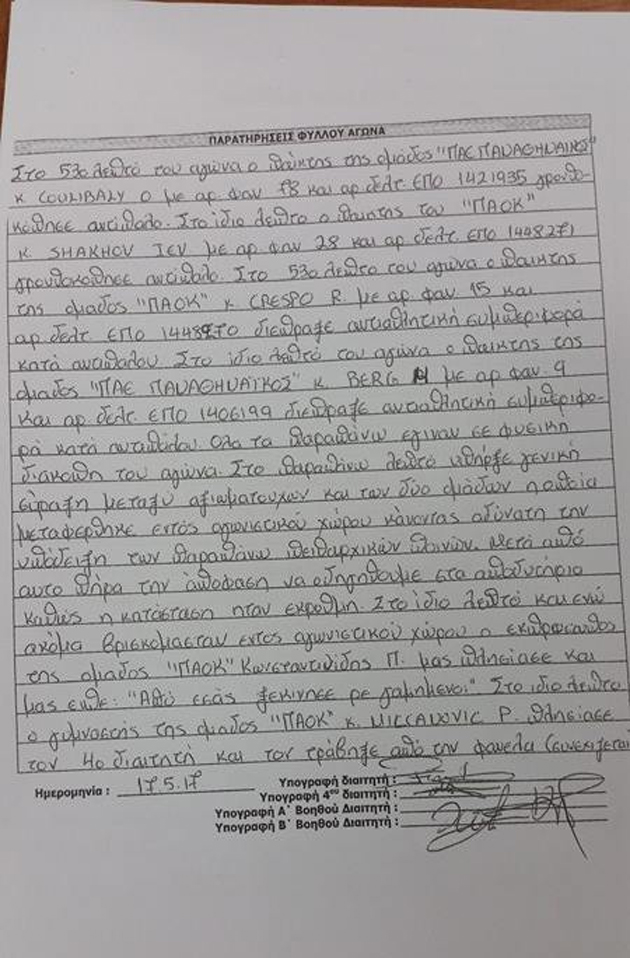 ΠΑΡΑΤΗΡΗΣΕΙΣ ΦΥΛΛΟΥ ΑΓΩΝΑ
Στο 53ο λεπτό του αγώνα ο παίκτης της ομάδος "ΠΑΕ ΠΑΝΑΘΗΝΑΙΚΟΣ"
κ COULIBALY O με αρ. φαν 78 και αρ. δελτ. ΕΠΟ 1421935 γρονθο-
κόπησε αντίπαλο. Στο ίδιο λεπτο ο παικτης του "ΠΑΟΚ"
κ. SHAKHOV IEV με αρ. φαν 28 και αρ δελτ. ΕΠΟ 1448271
γρονθοκόπησε αντίπαλο. Στο 53ο λεπτο του αγώνα ο παικτης
της ομαδος "ΠΑΟΚ" κ CRESPO R. με αρ. φαν. 15 και
αρ. δελτ. ΕΠΟ διέπραξε αντιαθλητική συμπεριφορά
κατά αντιπάλου. Στο ίδιο λεπτό του αγώνα ο παικτης της
ομάδος "ΠΑΕ ΠΑΝΑΘΗΝΑΪΚΟΣ" κ. BERG με αρ. φαν. 9
και αρ. δελτ. ΕΠΟ 1406199 διεπραξε αντιαθλητική συμπεριφο-
ρά κατά αντιπάλου. Ολα τα παραπάνω έγιναν σε φυσική
διακοπη του αγώνα. Στο παραπάνω λεπτό υπήρξε γενική
σύραξη μεταξύ αξιωματούχων και των δύο ομάδων η οποία
μεταφερθηκε εντός αγωνιστικού χώρου κάνοντας αδύνατη την
υπόδειξη των παραπάνω πειθαρχικών ποινών. Μετά από
αυτο πήρα την απόφαση να οδηγηθουμε στα αποδυτήρια
καθώς η κατάσταση ηταν εκρυθμη. Στο ίδιο λεπτό και ενώ
ακόμα βρισκομασταν εντος αγωνιστικού χώρου ο εκπροσωπος
της ομαδος "ΠΑΟΚ" Κωνσταντινίδης Π. μας πλησίασε και
μας ειπε: "Από εσάς ξεκινησε ρε γαμημενοι" Στο ιδιο λεπτο
ο γυμναστής της ομαδος "ΠΑΟΚ" κ. MILLANOVIC P. πλησίασε
τον 4ο διαιτητή και τον τράβηξε από την φανελα (συνεχιζεται
Ημερομηνία : 17.5.17
Υπογραφή διαιτητή :
Υπογραφή 4ου διαιτητή :
Υπογραφή Α΄ Βοηθού Διαιτητή :
Υπογραφή Β΄ Βοηθού Διαιτητή :